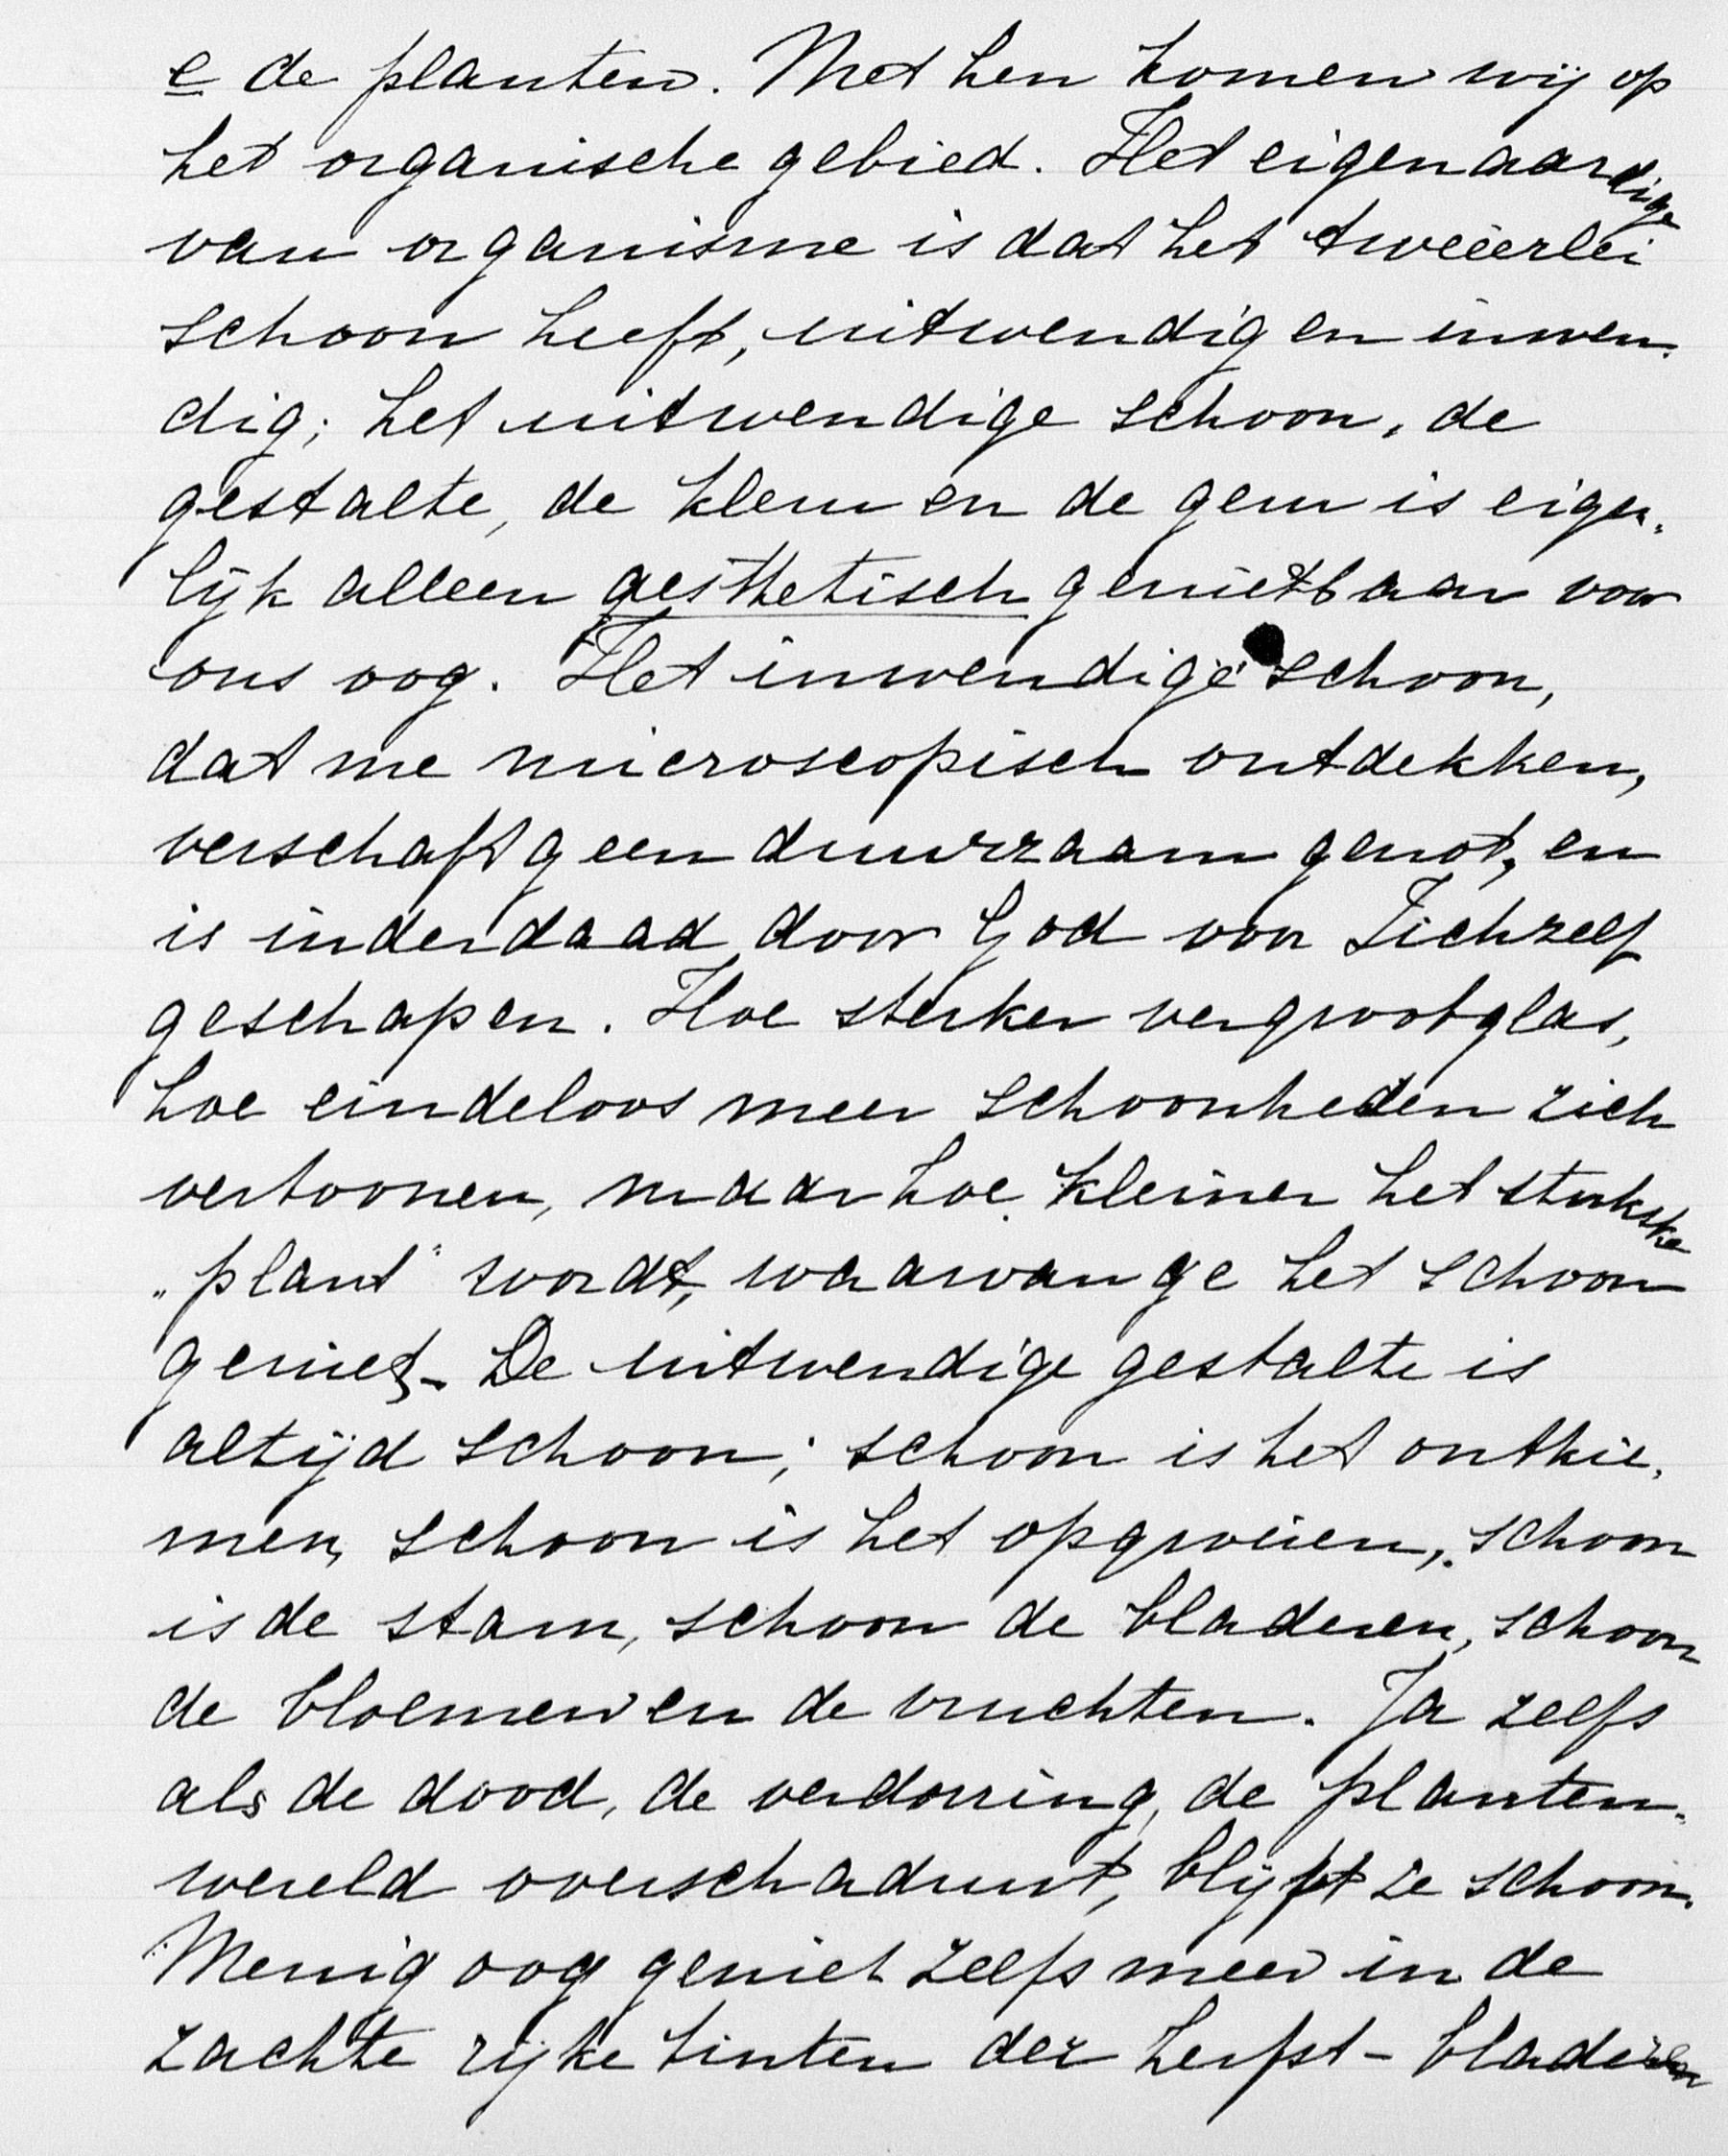 e de planten. Met hen komen wij op
het organische gebied. Het eigenaardige
van organisme is dat het tweeërlei
schoon heeft, uitwendig en inwen-
dig; het uitwendige schoon, de
gestalte, de kleur en de geur is eigen-
lijk alleen aesthetisch genietbaar voor
ons oog. Het inwendige schoon,
dat we microscopisch ontdekken,
verschaft geen duurzaam genot, en
is inderdaad door God voor Zichzelf
geschapen. Hoe sterker vergrootglas,
hoe eindeloos meer schoonheden zich
vertoonen, maar hoe kleiner het stukske
"plant" wordt, waarvan ge het schoon
geniet. De uitwendige gestalte is
altijd schoon; schoon is het ontkie-
men, schoon is het opgroeien, schoon
is de stam, schoon de bladeren, schoon
de bloemen en de vruchten. Ja zelfs
als de dood, de verdorring, de planten-
wereld overschaduwt, blijft ze schoon.
Menig oog geniet zelfs meer in de
zachte rijke tinten der herfst-bladeren